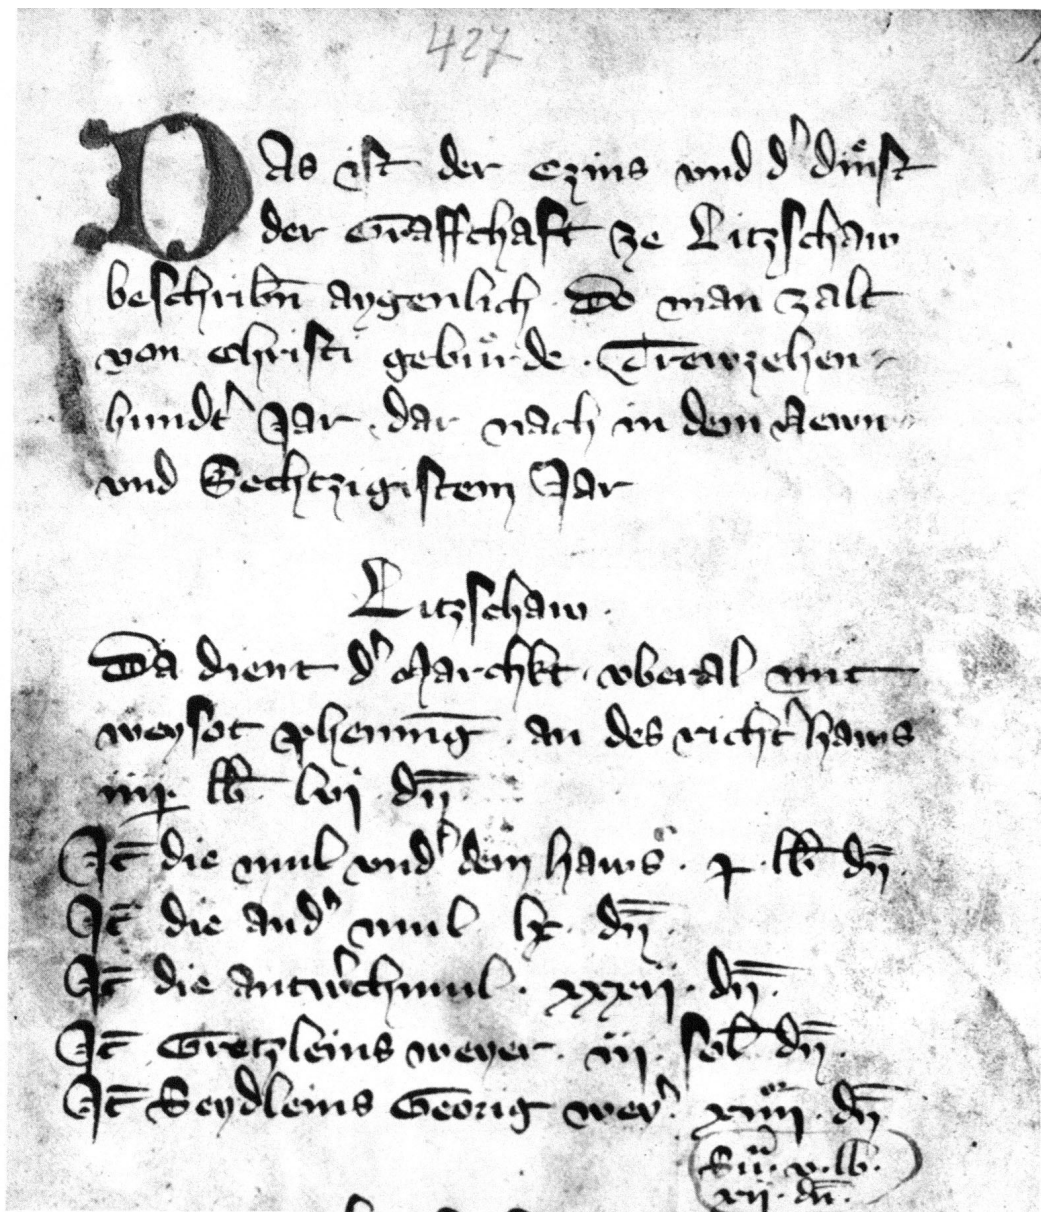 427
DAs ist der Czins vnd d' dinst
der Graffchaft ze Litzschaw
beschribn̄ aygenlich. Do man zalt
von Christi gebůrde. Drewzehen-
hundt' Jar. dar nach in dem Newn-
vnd Sechtzigistem Jar
Litzschaw.
Da dient d' Marchkt. vberal mit
weysot phennīg. an des richt' haws
lb. lvi. dn̄.
It̄ die mul vnd' dem haws. lb. dn̄.
It̄ die and' mul lx. dn̄.
It̄ die antw'chmul. xxxii. dn̄.
It̄ Gretzleins weyer. iii. sol. dn̄.
It̄ Seydleins Georig wey'. xiiii. dn̄
Sū. v. lb.
xii. dn̄.